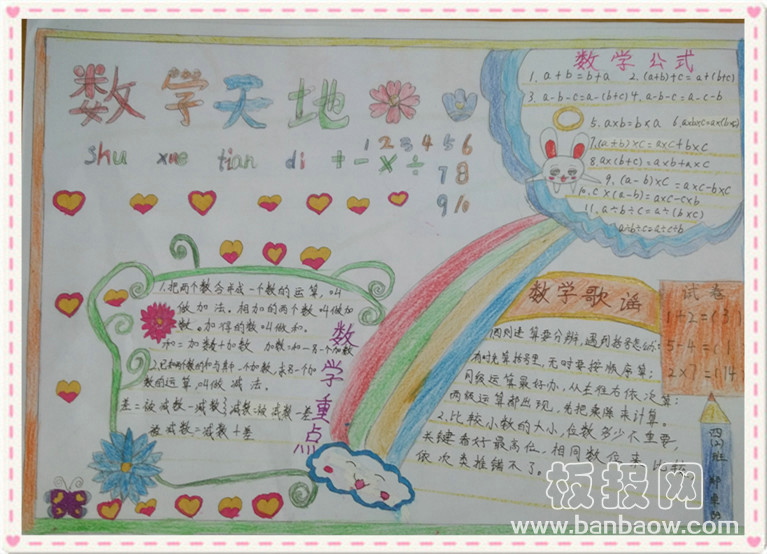 数学天地
shu xue tian di
+ - × ÷
1 2 3 4 5 6
7 8
9 10
数学公式
1. a+b=b+a 2. (a+b)+c=a+(b+c)
3. a-b-c=a-(b+c) 4. a-b-c=a-c-b
5. a×b=b×a 6. a×b×c=a×(b×c)
7. (a+b)×c=a×c+b×c
8. a×(b+c)=a×b+a×c
9. (a-b)×c=a×c-b×c
10. c×(a-b)=a×c-c×b
11. a÷b÷c=a÷(b×c)
a÷b÷c=a÷c÷b
1.把两个数合并成一个数的运算,叫
做加法。相加的两个数叫做加
数。加得的数叫做和。
和=加数+加数 加数=和-另一个加数
2.已知两个数的和与其中一个加数,求另一个加
数的运算,叫做减法。
差=被减数-减数 减数=被减数-差
被减数=减数+差
数学重点
数学歌谣
四则运算要分辨,遇到括号
有时先算括号里,无时要按顺序算;
同级运算最好办,从左往右依次算;
两级运算都出现,先把乘除来计算。
2.比较小数的大小,位数多少不重要,
关键看好最高位,相同数位来比较,
依次类推错不了。
试卷
1+2=(3)
5-4=(1)
2×7=(14)
板报网
www.banbaow.com